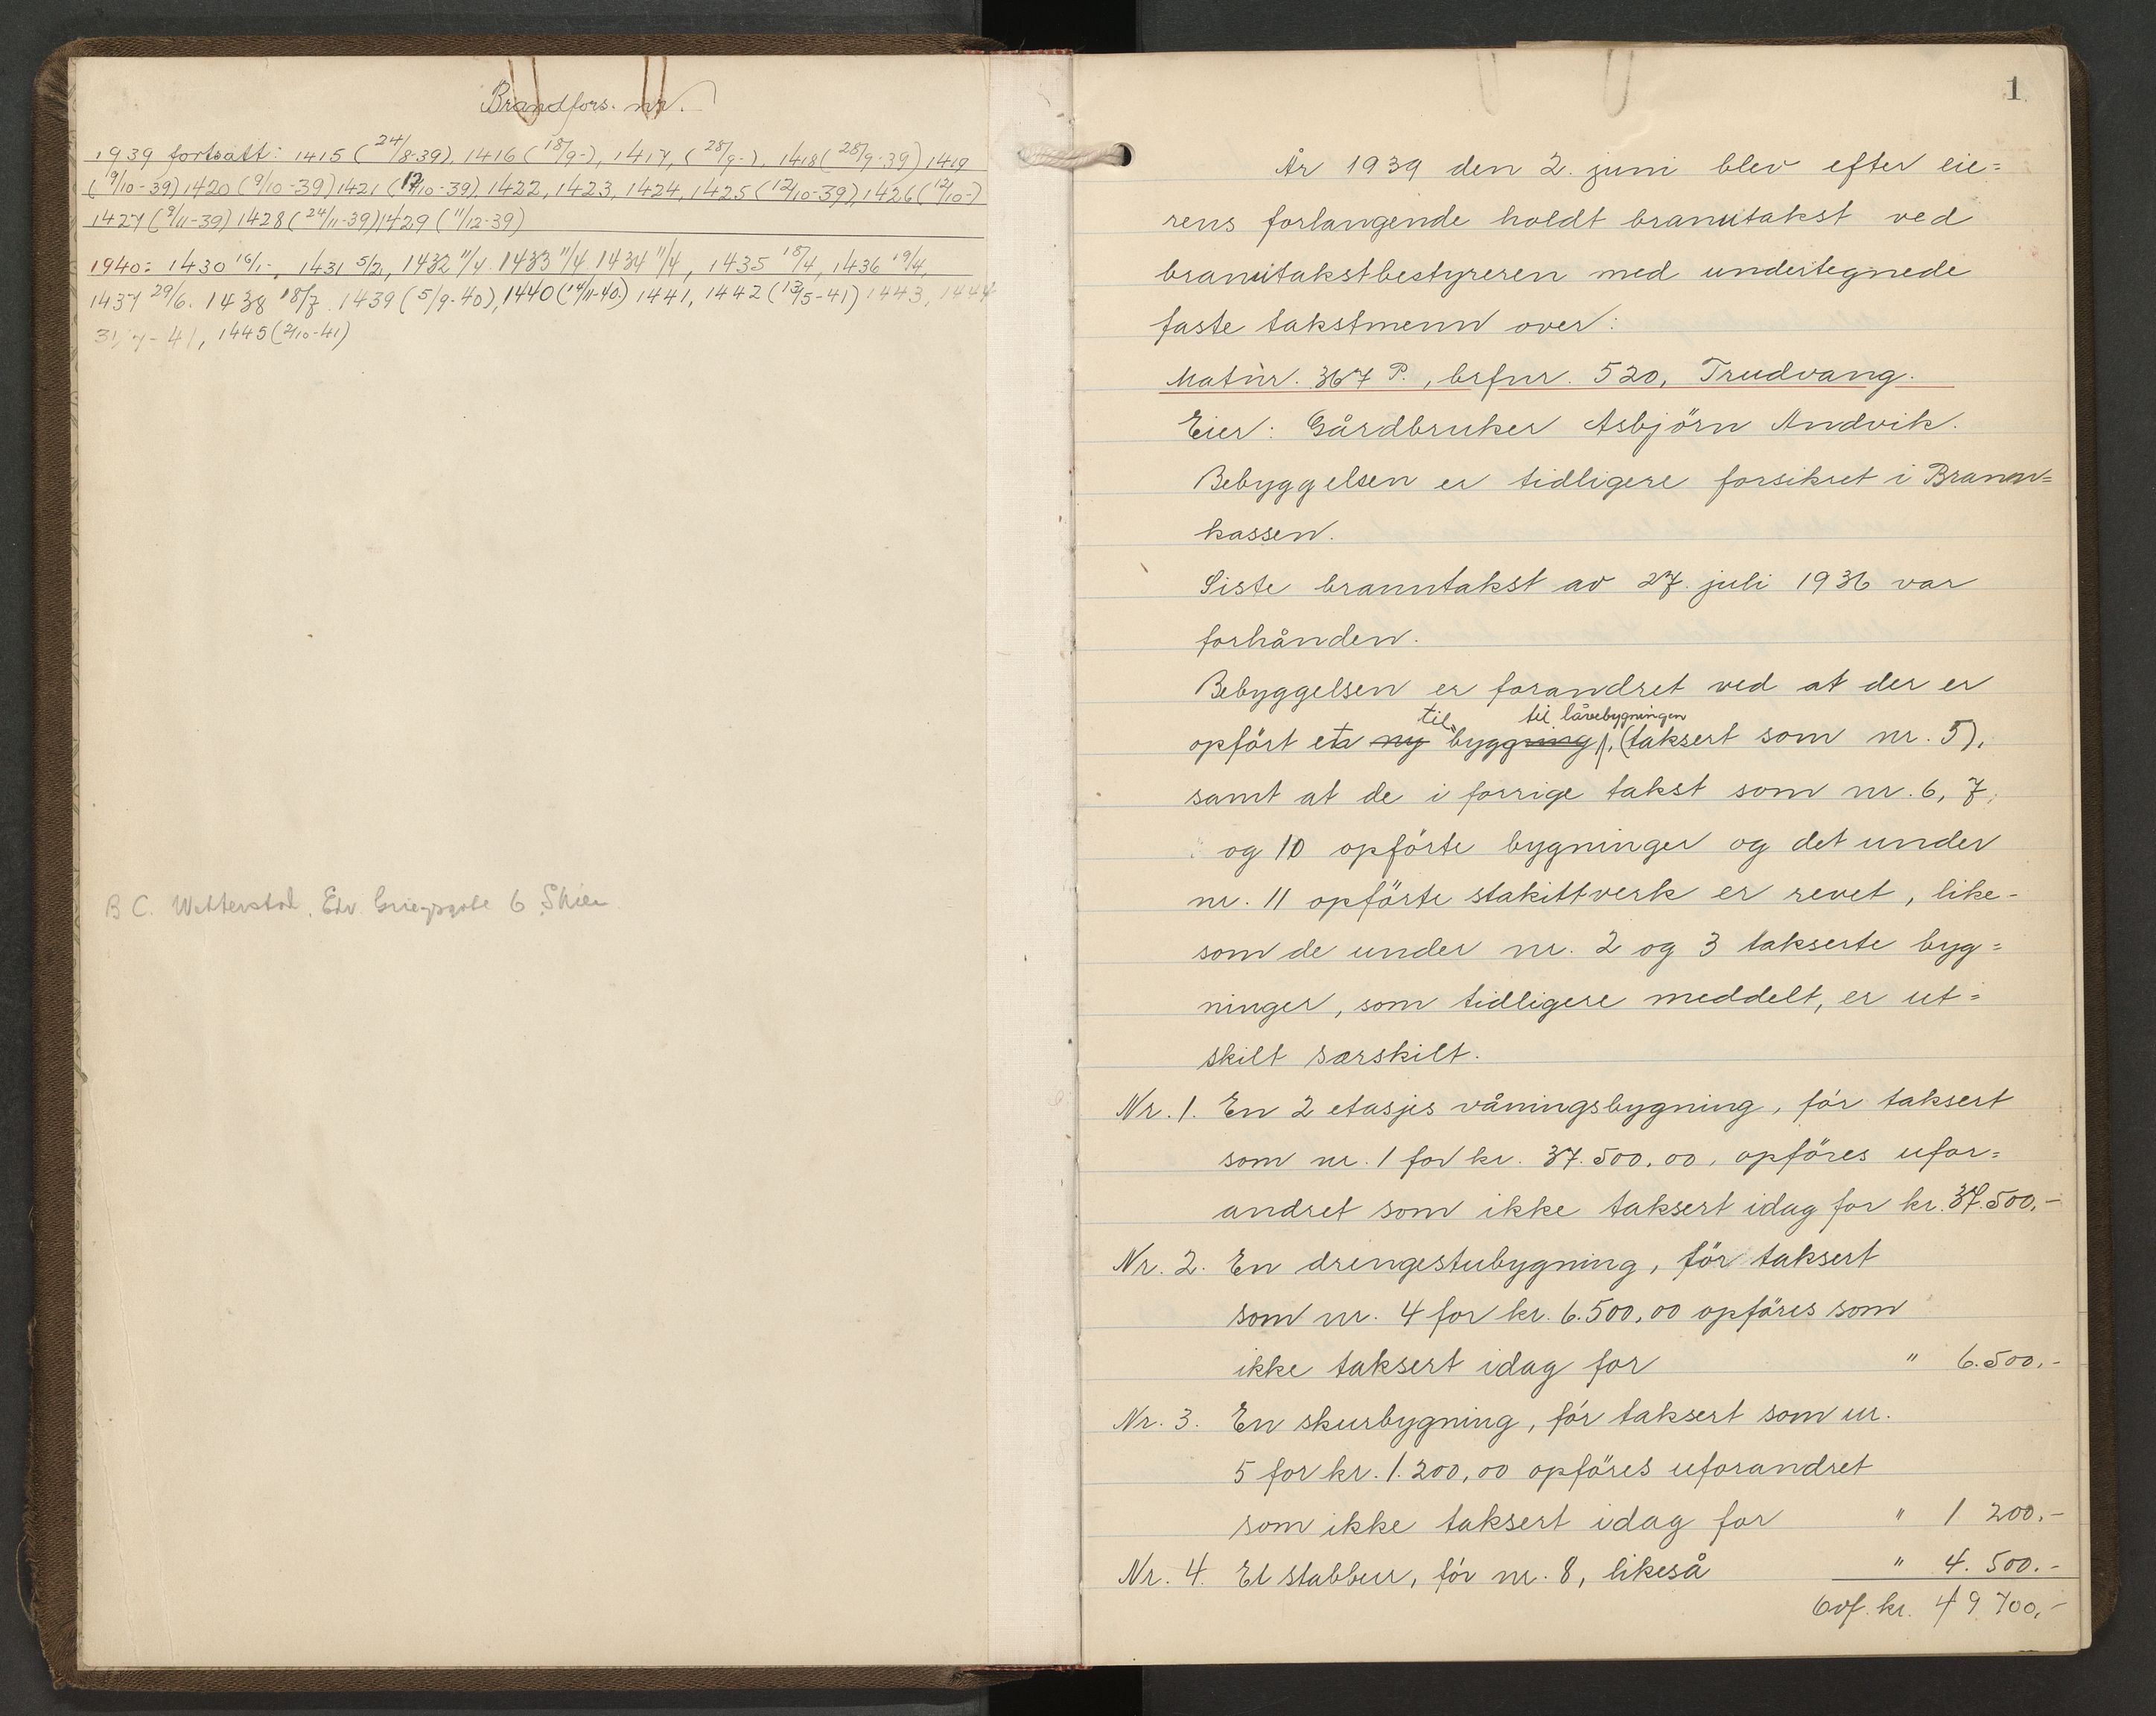 Brandfors. nr.
1939 fortsatt: 1415 (24/8-39), 1416 (18/9-), 1417, (28/9-), 1418 (28/9-39) 1419
(9/10-39) 1420 (9/10-39) 1421 (12/10-39), 1422, 1423, 1424, 1425 (12/10-39), 1426 (12/10-)
1427 (9/11-39) 1428 (24/11-39) 1429 (11/12-39)
1940: 1430 16/1-, 1431 5/2, 1432 11/4 1433 11/4 1434 11/4, 1435 18/4, 1436 19/4,
1437 29/6. 1438 18/7. 1439 (5/9-40), 1440 (14/11-40.) 1441, 1442 (13/5-41) 1443, 1444
31/7-41, 1445 (2/10-41)
B C. Edv. Griegsgate 6 Skien
1
År 1939 den 2. juni blev efter eie=
rens forlangende holdt branntakst ved
branntakstbestyreren med undertegnede
faste takstmenn over:
Matnr. 367 P., brfnr. 520, Trudvang.
Eier: Gårdbruker Asbjörn Andvik.
Bebyggelsen er tidligere forsikret i Brann=
kassen.
Siste branntakst av 27. juli 1936 var
forhånden.
Bebyggelsen er forandret ved at der er
til til låvebygningen
opfört et ny byggning, (taksert som nr. 5),
samt at de i forrige takst som nr. 6, 7,
og 10 opförte bygninger og det under
nr. 11 opförte stakittverk er revet, like-
som de under nr. 2 og 3 takserte byg=
ninger, som tidligere meddelt, er ut=
skilt særskilt.
Nr. 1. En 2 etasjes våningsbygning, för taksert
som nr. 1 for kr. 37.500,00, opföres ufor=
andret som ikke taksert idag for kr. 37.500,-
Nr. 2. En drengestubygning, för taksert
som nr. 4 for kr. 6.500,00 opföres som
ikke taksert idag for " 6.500,-
Nr. 3. En skurbygning, för taksert som nr.
5 for kr. 1.200,00 opföres uforandret
som ikke taksert idag for " 1 200,-
Nr. 4. Et stabbur, för nr. 8, likeså " 4.500.-
Ovf. kr. 49 700,-